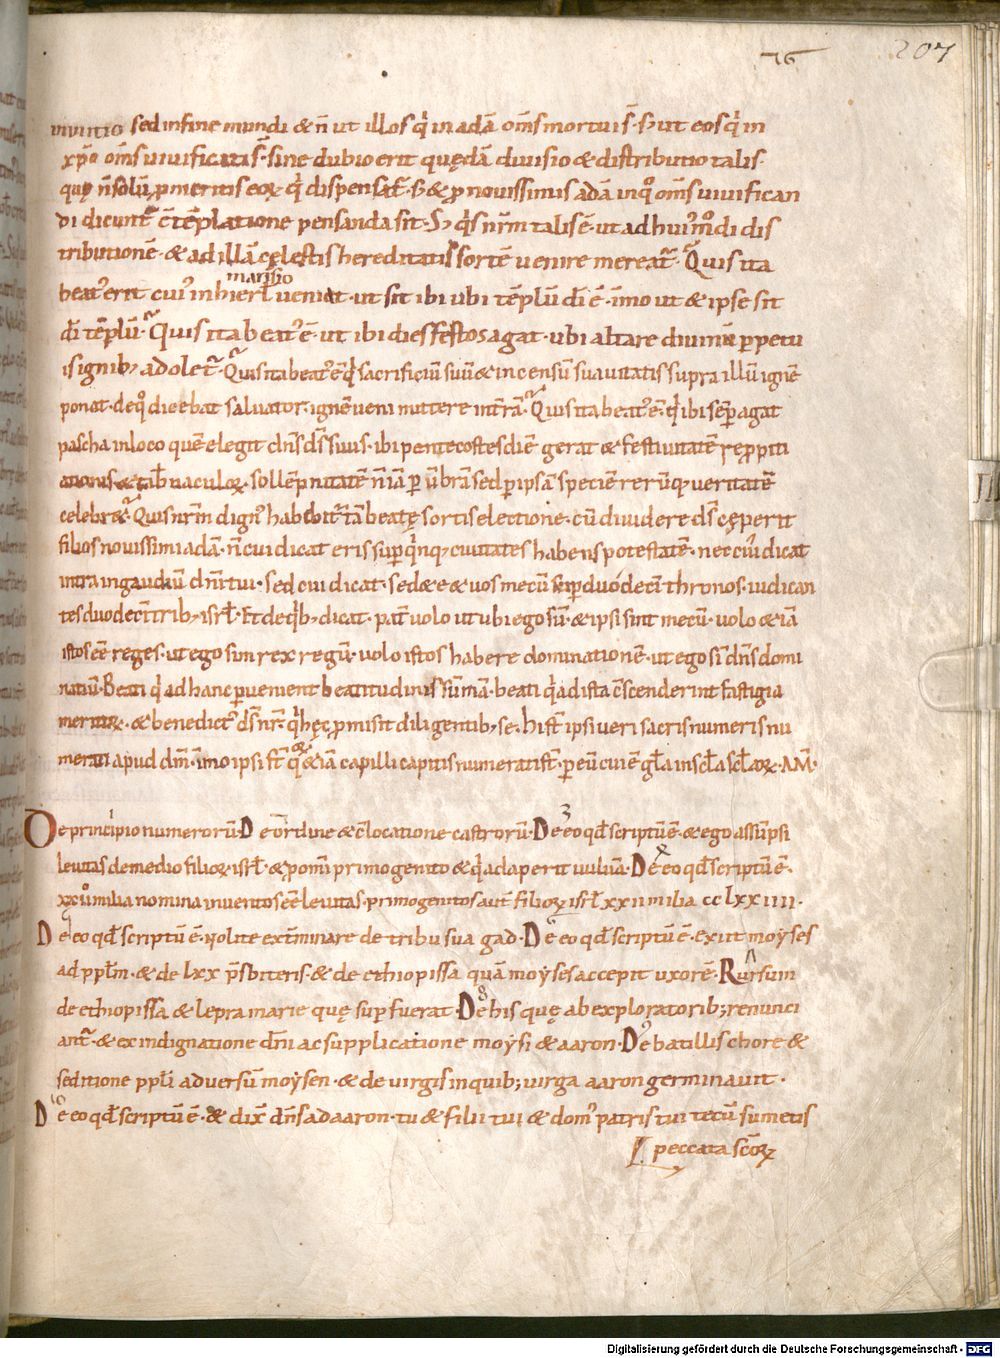 76
207
in initio sed in fine mundi & n̄ ut illos q̇ in adā om̄s mortui s̄t· s; ut eos q̇ in
xp̄o om̄s uiuificati s̄t· sine dubio erit quędā diuisio & distributio talis·
quę n̄ solū p meritis eoꝝ q̇ dispensat̄· s; & p nouissimus adā in q° om̄s uiuifican
di dicunt̄ c̄tēplatione pensanda sit· S; q̇s nr̄m talis ē· ut ad hui' m°di dis
tributionē· & ad illā cęlestis hereditatis sortē uenire mereat̄· Quis ita
mansio
beat' erit cui' in hierl̄ ueniat· ut sit ibi ubi tēplū dī ē· imo ut & ipse sit
dī tēplū· Quis ita beat' ē· ut ibi dies festos agat· ubi altare diuinū ppetu
is ignib; adolet̄· Quis ita beat' ē q̇ sacrificiū suū & incensū suauitatis supra illū ignē
ponat· de q° dicebat saluator· ignē ueni mittere in t̄rā· Quis ita beat' ē· q̇ ibi sēp agat
pascha in loco quē elegit dn̄s ds̄ suus· ibi pentecostes diē gerat & festiuitatē repppiti
ationis & tab̄naculoꝝ· sollēpnitatē n̄ iā p ūbrā sed p ipsā speciē rerūq; ueritatē
celebr&· Quis nr̄m dign' habebit̄ tā beatę sortis electione· cū diuidere ds̄ cęperit
filios nouissimi adā· n̄ cui dicat eris sup q̇nq; ciuitates habens potestatē· nec cui dicat
intra in gaudiū dn̄i tui· sed cui dicat· sed&e & uos mecū sup duodecī thronos· iudican
tes duodecī trib; isrl̄· Et de q̇b; dicat· pat̄ uolo ut ubi ego sū· & ipsi sint mecū· uolo & iā
istos ēē reges· ut ego sim rex regū· uolo istos habere dominationē· ut ego sī dn̄s domi
natiū· Beati q̇ ad hanc puenient beatitudinis sūmā· beati q̇ ad ista c̄scenderint fastigia
meritoꝝ· & benedict' ds̄ nr̄ q̇ hęc pmisit diligentib; se· hi st̄ ipsi ueri sacris numeris nu
merati apud dm̄· imo ipsi st̄ q°ꝝ & iā capilli capitis numerati st̄· p eū cui ē gl̄a in scl̄a scl̄oꝝ· AM̄·
De principio numerorū· De ordine & c̄locatione castrorū· De eo qd̄ scriptū ē· & ego assūpsi
leuitas de medio filioꝝ isrl̄· & p om̄i primogenito & q̇ adaperit uuluā· De eo qd̄ scriptū ē·
xxii milia nomina inuentos ēē leuitas· primogenitos aut̄ filioꝝ isrl̄ xxii milia cclxxiiii·
De eo qd̄ scriptū ē· nolite ext̄minare de tribu sua gad· De eo qd̄ scriptū ē· exiit moyses
ad ppl̄m· & de lxx p̄sbiteris· & de ethiopissa quā moyses accepit uxorē· Rursum
de ethiopissa & lepra marie quę sup fuerat· De his quę ab exploratorib; renunci
ant̄· & ex indignatione dn̄i ac supplicatione moysi & aaron· De batillis chore &
seditione ppl̄i aduersū moysen· & de uirgis in quib; uirga aaron germinauit·
De eo qd̄ scriptū ē· & dix̄ dn̄s ad aaron· tu & filii tui & dom' patris tui tecū sumetis
peccata sc̄oꝝ
Digitalisierung gefördert durch die Deutsche Forschungsgemeinschaft - DFG